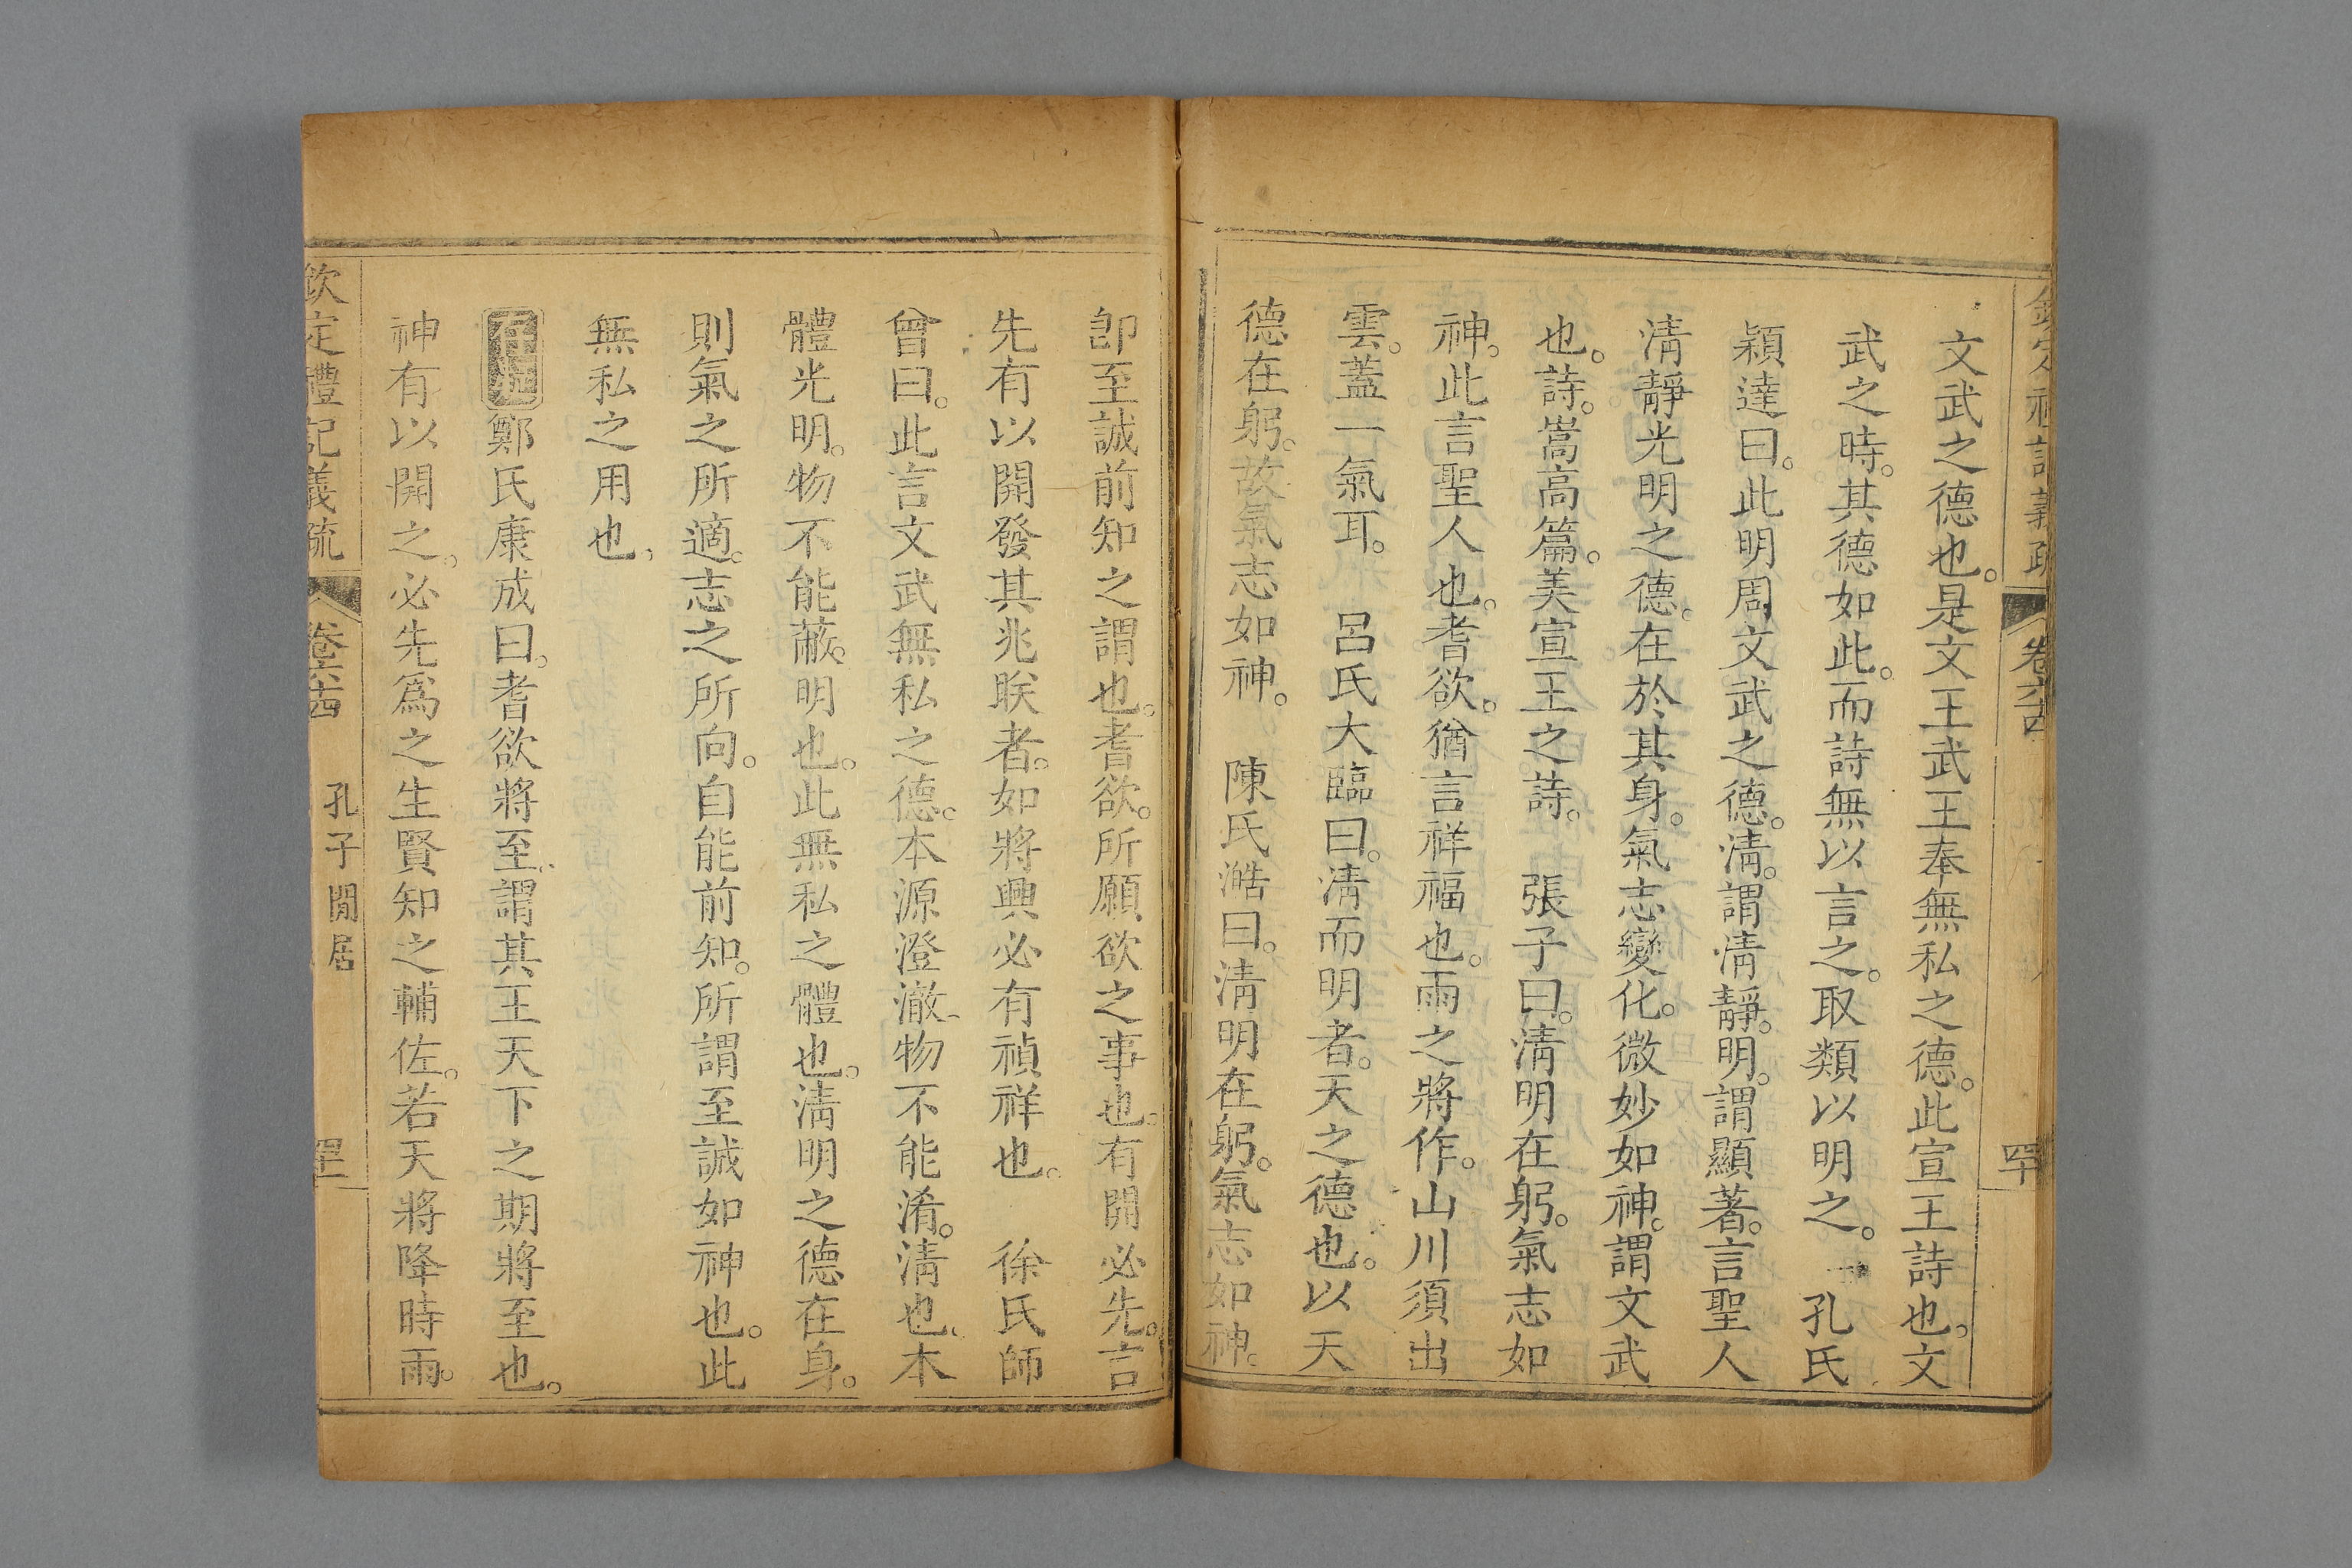 欽定禮記義疏 卷六十四 四十
文武之德也。是文王武王奉無私之德。此宣王詩也。文
武之時。其德如此。而詩無以言之。取類以明之。 孔氏
穎達曰。此明周文武之德。淸。謂淸靜。明。謂顯著。言聖人
淸靜光明之德。在於其身。氣志變化。微妙如神。謂文武
也。詩。嵩高篇。美宣王之詩。 張子曰。淸明在躬。氣志如
神。此言聖人也。耆欲。猶言祥福也。雨之將作。山川須出
雲。蓋一氣耳。 呂氏大臨曰。淸而明者。天之德也。以天
德在躬。故氣志如神。 陳氏澔曰。淸明在躬。氣志如神。
卽至誠前知之謂也。耆欲。所願欲之事也。有開必先。言
先有以開發其兆眹者。如將興必有禎祥也。 徐氏師
曾曰。此言文武無私之德。本源澄澈、物不能淆。淸也、本
體光明。物不能蔽。明也。此無私之體也。淸明之德在身。
則氣之所適。志之所向。自能前知。所謂至誠如神也。此
無私之用也、
存疑鄭氏康成曰。耆欲將至、謂其王天下之期將至也。
神有以開之。必先爲之生賢知之輔佐。若天將降時雨。
欽定禮記義疏 卷六十四 孔子閒居 四十一